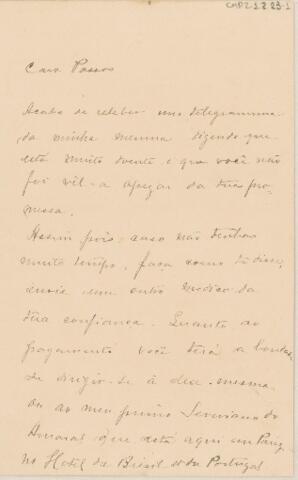 CMP2.1.2 23-1
Caro Passos
Acabo de receber um telegramma
da minha menina dizendo que
está muito doente e que você não
foi vel-a apezar da tua pro-
messa.
Assim pois, caso não tenhas
muito tempo, faça como te disse,
envie um outro medico da
tua confiança. Quanto ao
pagamento você terá a bondade
de dirigir-se à ella mesma
ou ao meu primo do
Amaral que está aqui em Pariz
no Hotel du Brésil et du Portugal